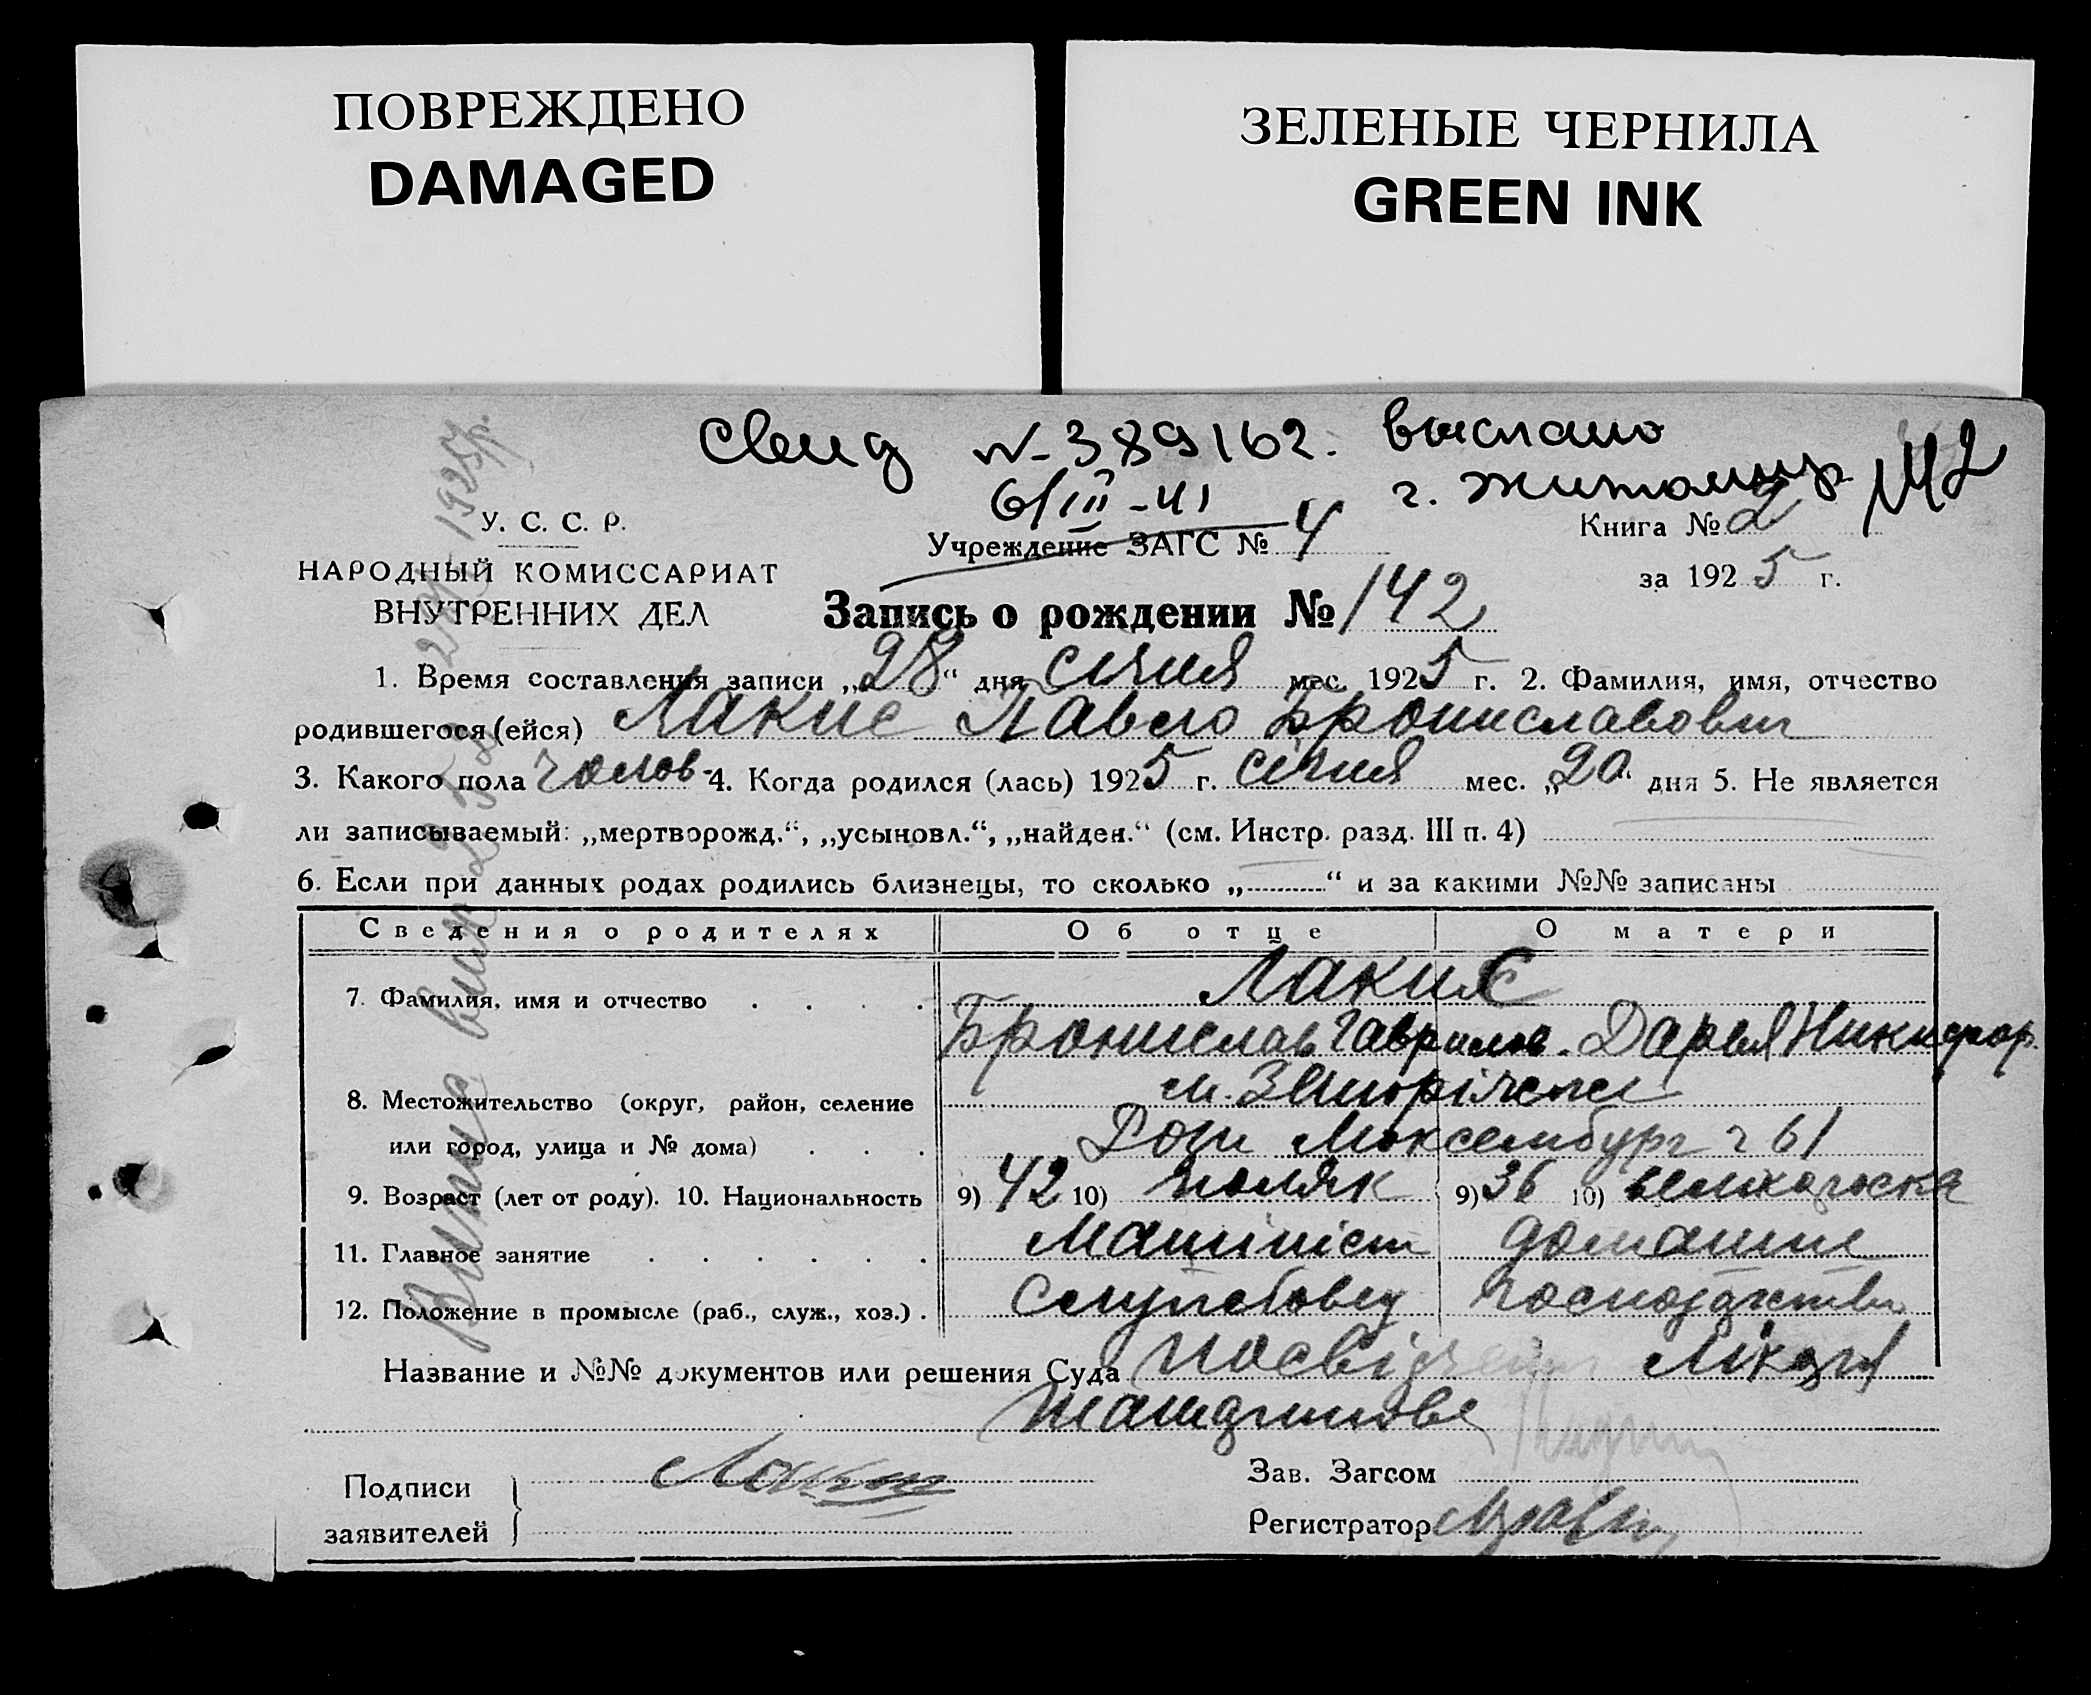 ПОВРЕЖДЕНО
DAMAGED
ЗЕЛЕНЫЕ ЧЕРНИЛА
GREEN INK
Свид № 389162. выслано
6/III-41 г. Житомир
У. С. С. Р.
НАРОДНЫЙ КОМИССАРИАТ
ВНУТРЕННИХ ДЕЛ
Учреждение ЗАГС № 4
Книга № 2
за 1925 г.
Запись о рождении № 142
1. Время составления записи „28“ дня січня мес. 1925 г. 2. Фамилия, имя, отчество
родившегося (ейся) Лакис Павло Брониславович
3. Какого пола чолов. 4. Когда родился (лась) 1925 г. січня мес. „20“ дня 5. Не является
ли записываемый: „мертворожд.“, „усыновл.“, „найден.“ (см. Инстр. разд. III п. 4)
6. Если при данных родах родились близнецы, то сколько „..........“ и за какими №№ записаны
Сведения о родителях Об отце О матери
7. Фамилия, имя и отчество . . . . Лакис
Бронислав Гаврилов. Дарья Никифор.
8. Местожительство (округ, район, селение м.
или город, улица и № дома) . . . 61
9. Возраст (лет от роду). 10. Национальность 9) 42 10) поляк 9) 36 10)
11. Главное занятие . . . . . . Машиніст домашнє
12. Положение в промысле (раб., служ., хоз.) .
Название и №№ документов или решения Суда посвідчення лікаря
Подписи
заявителей
Зав. Загсом
Регистратор